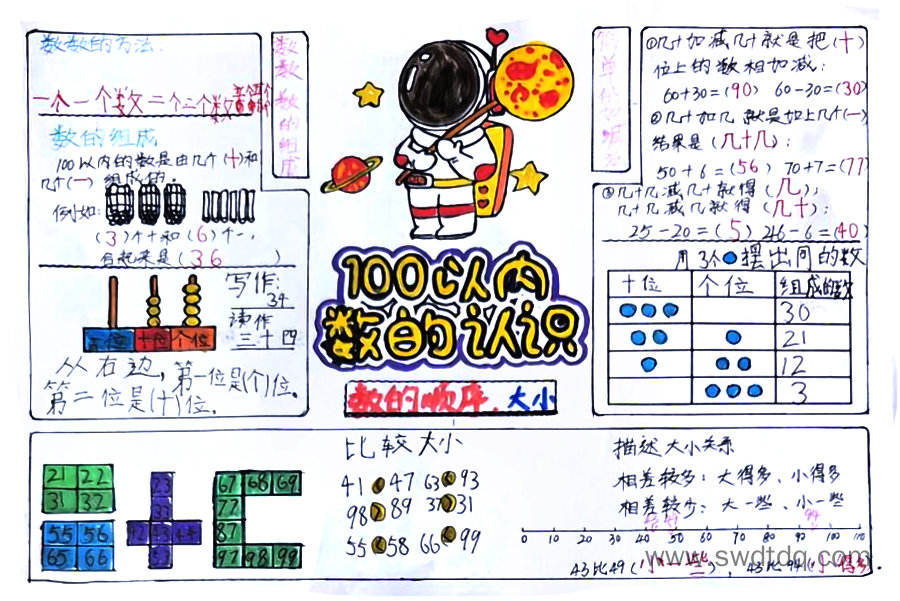 数数的方法:
一个一个数 二个二个数
数的组成
100以内的数是由几个(十)和
几个(一)组成的。
例如:
(3)个十和(6)个一,
合起来是(36)
数数 数的组成
写作:
34
读作
三十四
百位 十位 个位
从右边,第一位是(个)位。
第二位是(十)位。
100以内
数的认识
数的顺序、大小
简单的加减法
①几十加减几十就是把(十)
位上的数相加减:
60+30=(90) 60-30=(30)
②几十加几就是加上几个(一)
结果是(几十几):
50+6=(56) 70+7=(77)
③几十几减几十就得(几);
几十几减几就得(几十):
25-20=(5) 46-6=(40)
用3个摆出同的数
十位 个位 组成的数
30
21
12
3
21 22
31 32
55 56
65 66
23
33
43 44
53
67 68 69
77
87
97 98 99
比较大小
41 < 47 63 < 93
98 > 89 37 > 31
55 < 58 66 < 99
描述大小关系
相差较多:大得多、小得多
相差较少:大一些、小一些
0 10 20 30 40 50 60 70 80 90 100 110
43比49(小一些), 43比94(小得多).
www.swdtdq.com